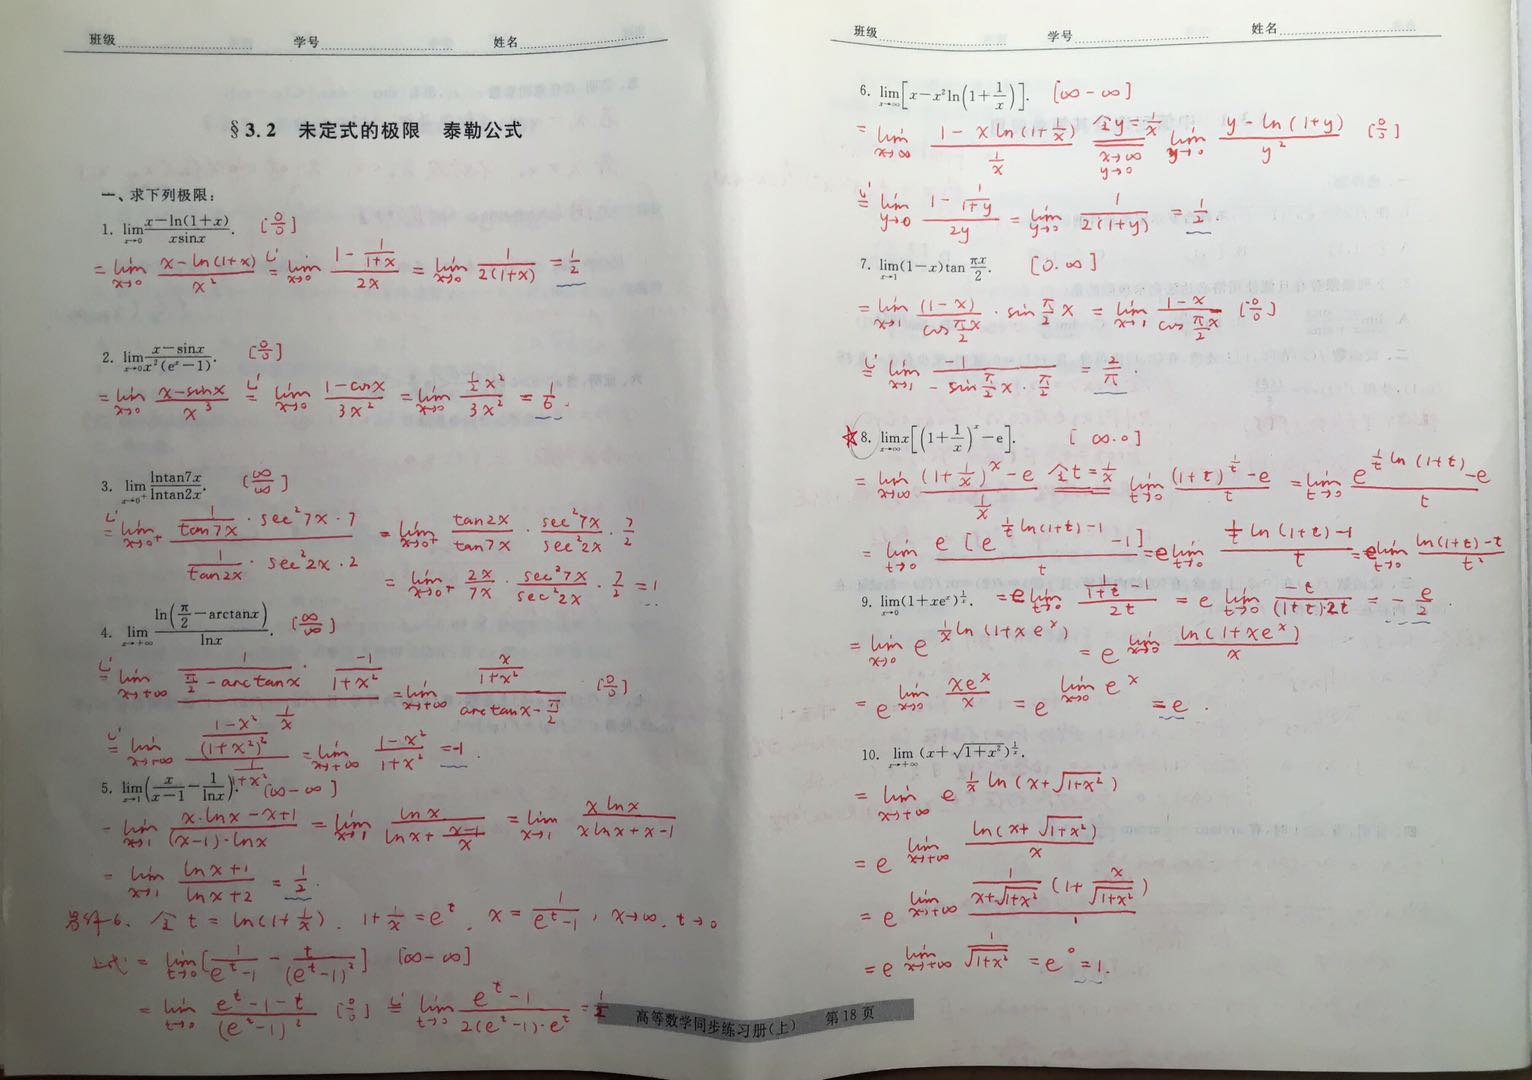 班级 学号 姓名
§3.2 未定式的极限 泰勒公式
一、求下列极限:
1. lim_{x→0} (x−ln(1+x))/(x sinx). [0/0]
= lim_{x→0} (x−ln(1+x))/x² =^{L'} lim_{x→0} (1−1/(1+x))/(2x) = lim_{x→0} 1/(2(1+x)) = 1/2
2. lim_{x→0} (x−sinx)/(x²(eˣ−1)). [0/0]
= lim_{x→0} (x−sinx)/x³ =^{L'} lim_{x→0} (1−cosx)/(3x²) = lim_{x→0} (½x²)/(3x²) = 1/6.
3. lim_{x→0⁺} (lntan7x)/(lntan2x). [∞/∞]
=^{L'} lim_{x→0⁺} (1/(tan7x)·sec²7x·7)/(1/(tan2x)·sec²2x·2) = lim_{x→0⁺} (tan2x)/(tan7x)·(sec²7x)/(sec²2x)·7/2
= lim_{x→0⁺} (2x)/(7x)·(sec²7x)/(sec²2x)·7/2 = 1
4. lim_{x→+∞} ln(π/2−arctanx)/lnx. [∞/∞]
=^{L'} lim_{x→+∞} (1/(π/2−arctanx)·(−1)/(1+x²))/(1/x) = lim_{x→+∞} (x/(1+x²))/(arctanx−π/2) [0/0]
=^{L'} lim_{x→+∞} ((1−x²)/(1+x²)²)/(1/(1+x²)) = lim_{x→+∞} (1−x²)/(1+x²) = −1.
5. lim_{x→1} (x/(x−1) − 1/lnx). [∞−∞]
= lim_{x→1} (x·lnx−x+1)/((x−1)·lnx) = lim_{x→1} lnx/(lnx+(x−1)/x) = lim_{x→1} (xlnx)/(xlnx+x−1)
= lim_{x→1} (lnx+1)/(lnx+2) = 1/2.
另解6. 令t=ln(1+1/x). 1+1/x=eᵗ. x=1/(eᵗ−1), x→∞. t→0
上式 = lim_{t→0} [1/(eᵗ−1) − t/(eᵗ−1)²] [∞−∞]
= lim_{t→0} (eᵗ−1−t)/(eᵗ−1)² [0/0] =^{L'} lim_{t→0} (eᵗ−1)/(2(eᵗ−1)·eᵗ) = 1/2
班级 学号 姓名
6. lim_{x→∞} [x−x²ln(1+1/x)]. [∞−∞]
= lim_{x→∞} (1−xln(1+1/x))/(1/x) 令y=1/x x→∞ y→0 lim_{y→0} (y−ln(1+y))/y² [0/0]
=^{L'} lim_{y→0} (1−1/(1+y))/(2y) = lim_{y→0} 1/(2(1+y)) = 1/2.
7. lim_{x→1} (1−x)tan(πx/2). [0·∞]
= lim_{x→1} (1−x)/(cos(π/2)x)·sin(π/2)x = lim_{x→1} (1−x)/(cos(π/2)x) [0/0]
=^{L'} lim_{x→1} −1/(−sin(π/2)x·π/2) = 2/π.
☆8. lim_{x→∞} x[(1+1/x)ˣ−e]. [∞·0]
= lim_{x→∞} ((1+1/x)ˣ−e)/(1/x) 令t=1/x lim_{t→0} ((1+t)^{1/t}−e)/t = lim_{t→0} (e^{(1/t)ln(1+t)}−e)/t
= lim_{t→0} e[e^{(1/t)ln(1+t)−1}−1]/t = e lim_{t→0} ((1/t)ln(1+t)−1)/t = e lim_{t→0} (ln(1+t)−t)/t²
= e lim_{t→0} (1/(1+t)−1)/(2t) = e lim_{t→0} (−t)/((1+t)·2t) = −e/2.
9. lim_{x→0} (1+xeˣ)^{1/x}.
= lim_{x→0} e^{(1/x)ln(1+xeˣ)} = e^{lim_{x→0} ln(1+xeˣ)/x}
= e^{lim_{x→0} xeˣ/x} = e^{lim_{x→0} eˣ} = e.
10. lim_{x→+∞} (x+√(1+x²))^{1/x}.
= lim_{x→+∞} e^{(1/x)ln(x+√(1+x²))}
= e^{lim_{x→+∞} ln(x+√(1+x²))/x}
= e^{lim_{x→+∞} (1/(x+√(1+x²))(1+x/√(1+x²)))/1}
= e^{lim_{x→+∞} 1/√(1+x²)} = e⁰ = 1.
高等数学同步练习册(上) 第18页